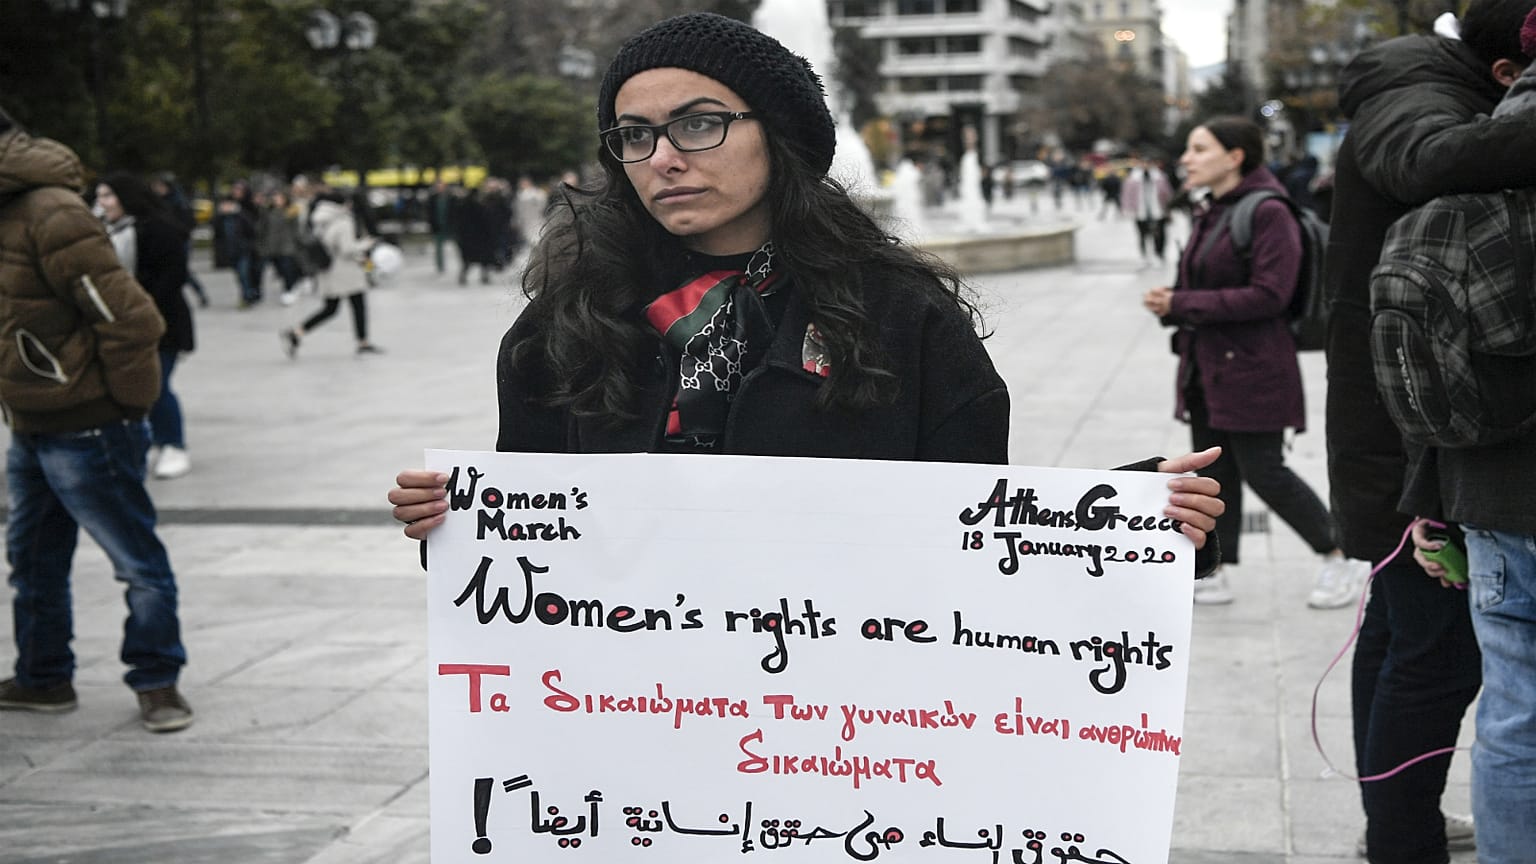 Women's
March
Athens, Greece
18 January 2020
Women's rights are human rights
Τα δικαιώματα των γυναικών είναι ανθρώπινα
δικαιώματα
حقوق لنساء هي حقوق إنسانية أيضاً!